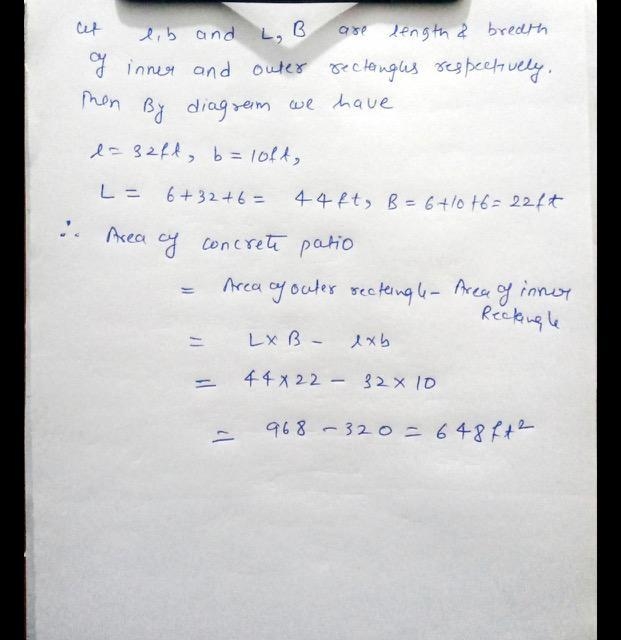 Let l, b and L, B are length & bredth
of inner and outer rectangles respectively.
Then By diagram we have
l = 32ft, b = 10ft,
L = 6+32+6 = 44ft, B = 6+10+6 = 22ft
∴ Area of concrete patio
= Area of outer rectangle - Area of inner
Rectangle
= L×B - l×b
= 44×22 - 32×10
= 968 - 320 = 648ft²